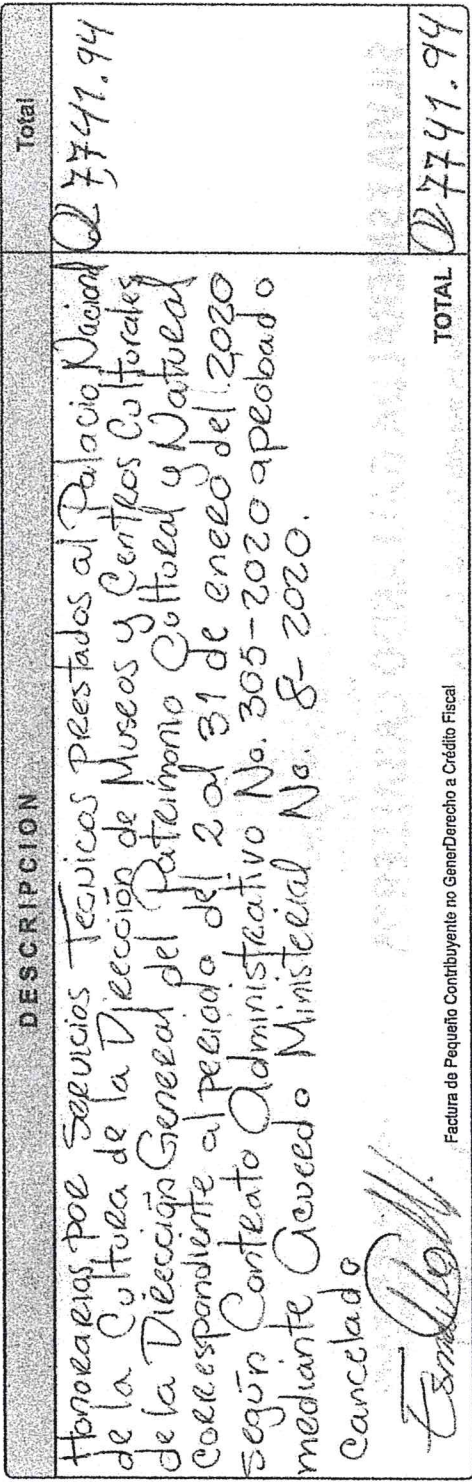 DESCRIPCION Total
Honorarios por Servicios Tecnicos prestados al Palacio Nacional Q 7741.94
de la Cultura de la Dirección de Museos y Centros Culturales
de la Dirección General del Patrimonio Cultural y Natural
correspondiente al periodo del 2 al 31 de enero del 2020
según Contrato Administrativo No. 305-2020 aprobado
mediante Acuerdo Ministerial No. 8-2020.
Cancelado
Factura de Pequeño Contribuyente no GenerDerecho a Crédito Fiscal
TOTAL Q 7741.94